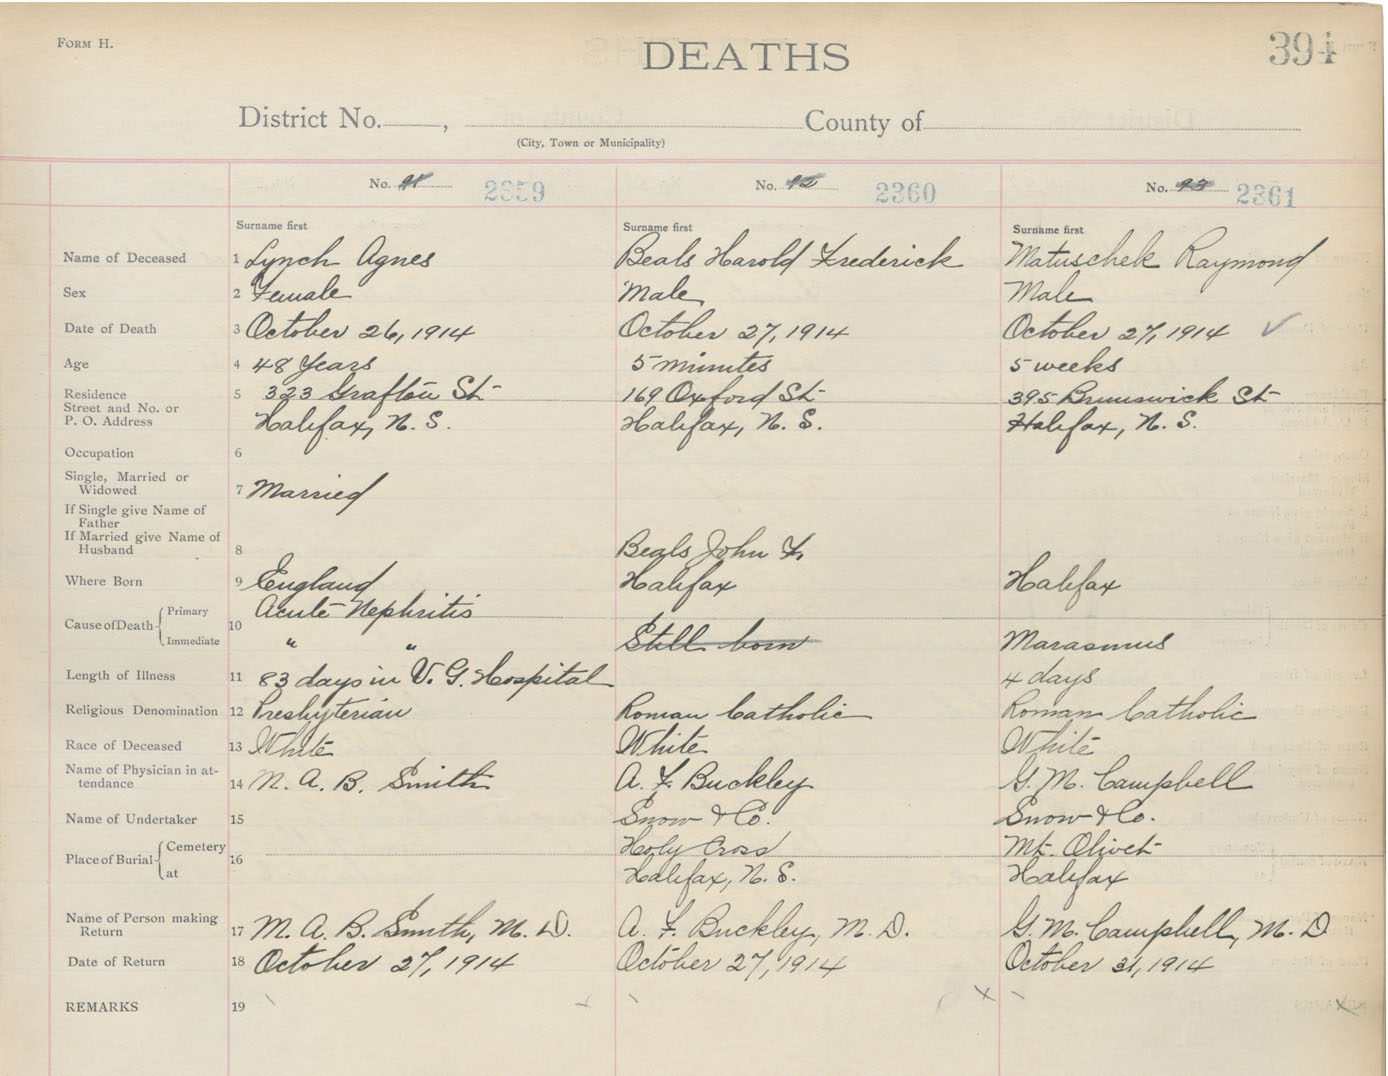 FORM H.
DEATHS
394
District No. , County of
(City, Town or Municipality)
No. 91 2359 No. 92 2360 No. 93 2361
Surname first Surname first Surname first
Name of Deceased 1 Lynch Agnes Beals Harold Frederick Matuschek Raymond
Sex 2 Female Male Male
Date of Death 3 October 26, 1914 October 27, 1914 October 27, 1914 ✓
Age 4 48 Years 5 minutes 5 weeks
Residence 5 323 Grafton St 169 Oxford St 395 Brunswick St
Street and No. or
P. O. Address Halifax, N. S. Halifax, N. S. Halifax, N. S.
Occupation 6
Single, Married or
Widowed 7 Married
If Single give Name of
Father
If Married give Name of
Husband 8 Beals John F.
Where Born 9 England Halifax Halifax
Cause of Death Primary 10 Acute Nephritis
Immediate " " Still born Marasmus
Length of Illness 11 83 days in V. G. Hospital 4 days
Religious Denomination 12 Presbyterian Roman Catholic Roman Catholic
Race of Deceased 13 White White White
Name of Physician in at-
tendance 14 M. A. B. Smith A. F. Buckley G. M. Campbell
Name of Undertaker 15 Snow & Co. Snow & Co.
Place of Burial Cemetery 16 Holy Cross Mt. Olivet
at Halifax, N. S. Halifax
Name of Person making
Return 17 M. A. B. Smith, M. D. A. F. Buckley, M. D. G. M. Campbell, M. D
Date of Return 18 October 27, 1914 October 27, 1914 October 31, 1914
REMARKS 19